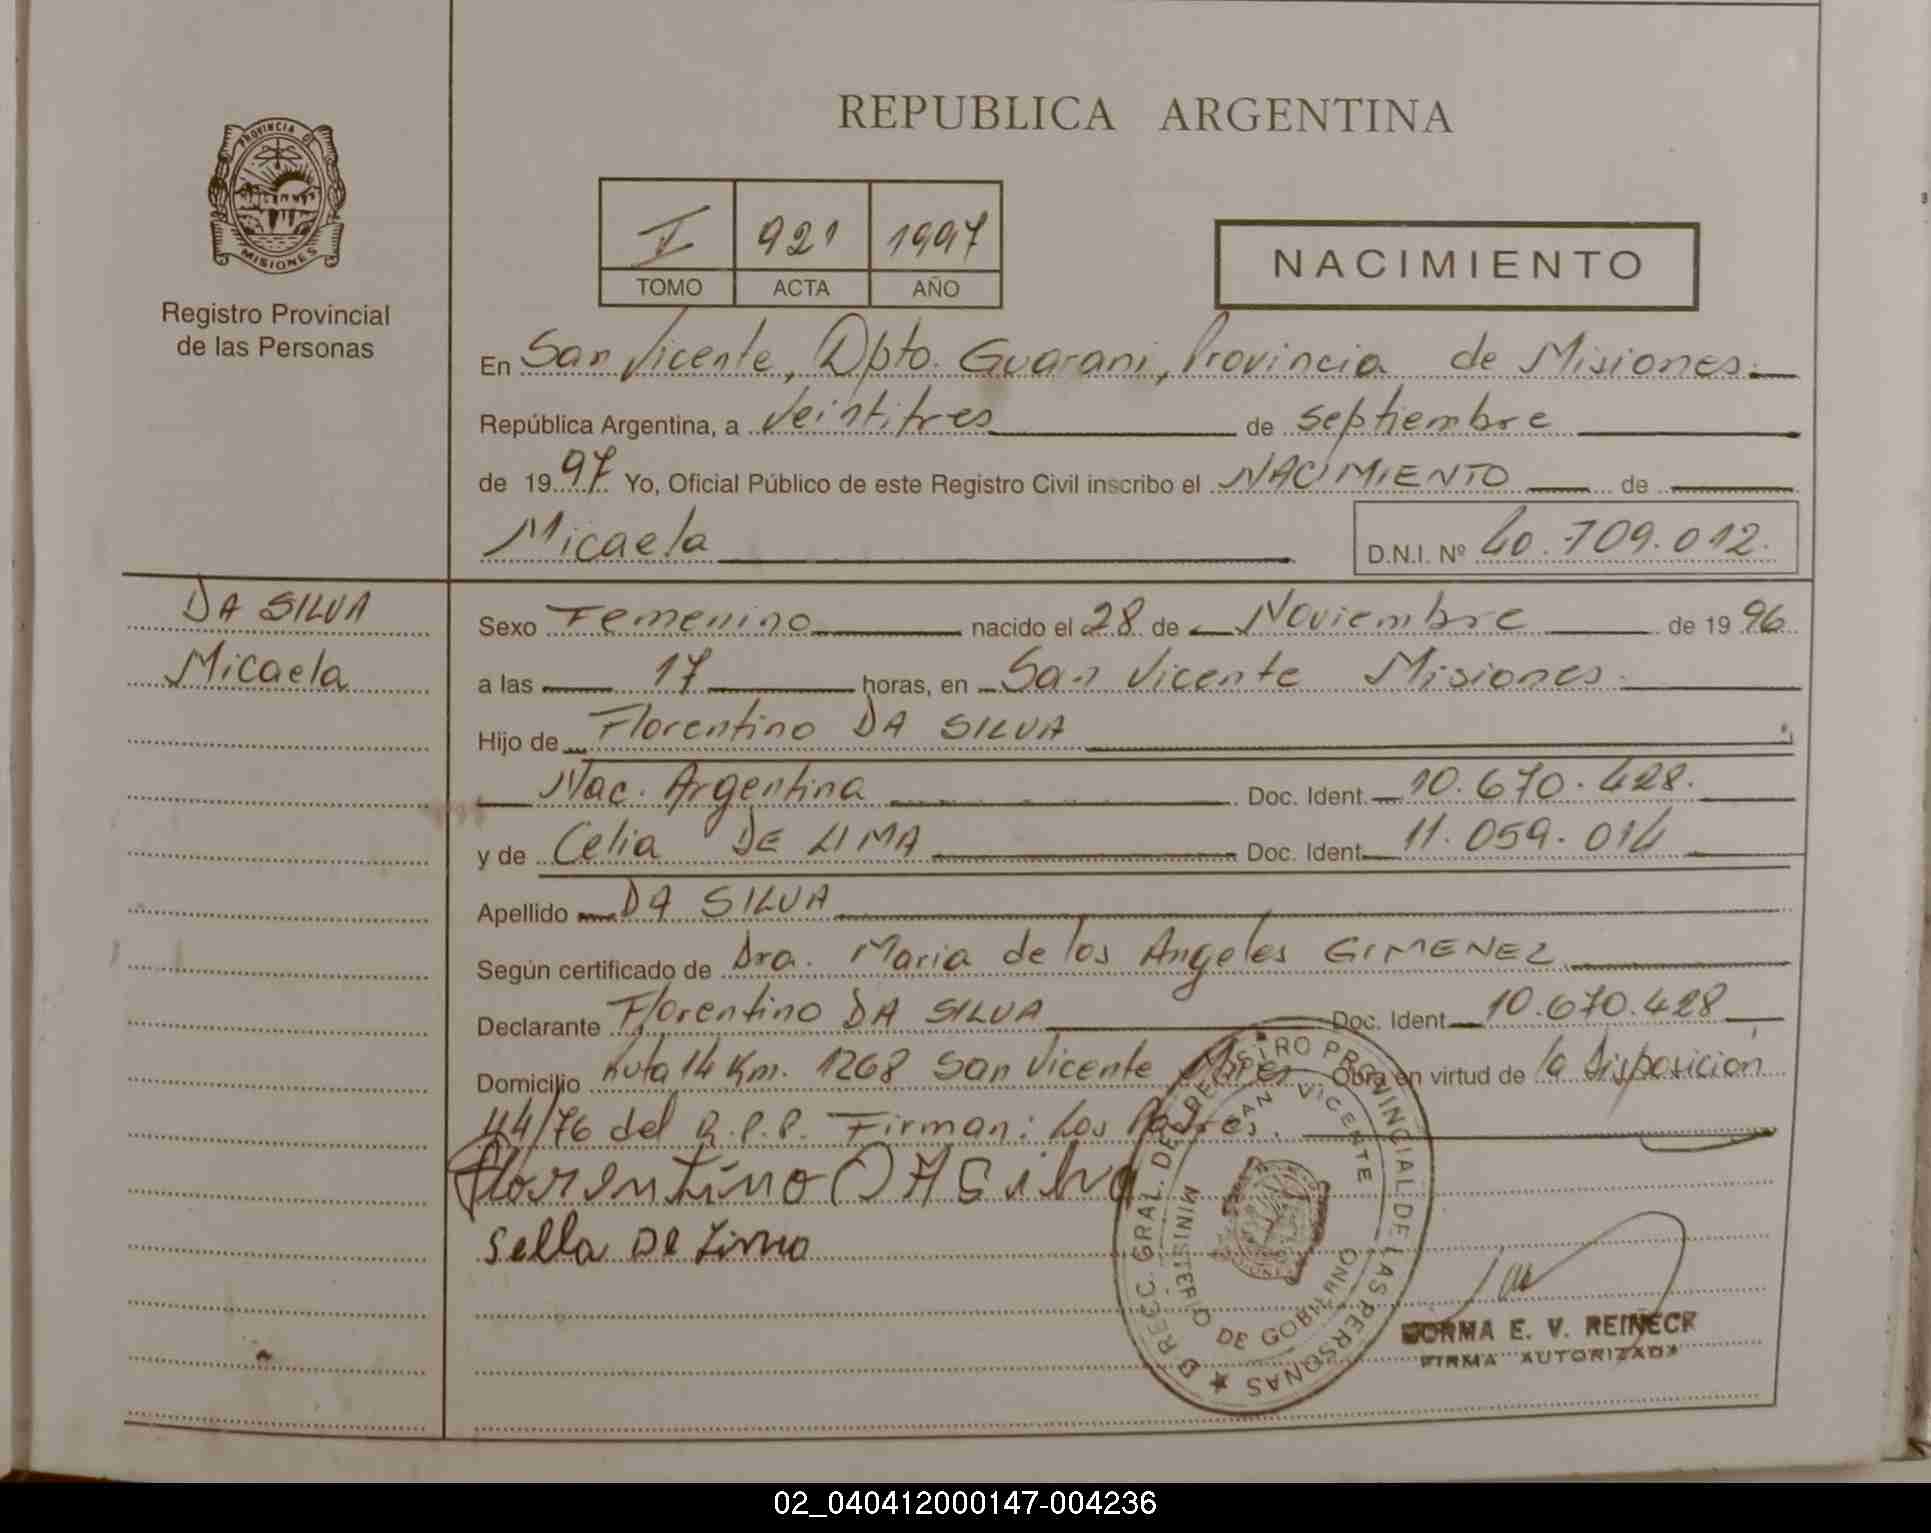 REPUBLICA ARGENTINA
PROVINCIA DE
MISIONES
Registro Provincial
de las Personas
I 921 1997
TOMO ACTA AÑO
NACIMIENTO
En San Vicente, Dpto. Guarani, Provincia de Misiones.
República Argentina, a veintitres de septiembre
de 1997 Yo, Oficial Público de este Registro Civil inscribo el NACIMIENTO de
Micaela D.N.I. Nº 40.709.012.
DA SILVA
Micaela
Sexo Femenino nacido el 28 de Noviembre de 1996
a las 17 horas, en San Vicente Misiones.
Hijo de Florentino DA SILVA
Nac. Argentina Doc. Ident. 10.670.428.
y de Celia DE LIMA Doc. Ident. 11.059.014
Apellido DA SILVA
Según certificado de Dra. Maria de los Angeles GIMENEZ
Declarante Florentino DA SILVA Doc. Ident. 10.670.428
Domicilio ruta 14 Km. 1268 San Vicente Mnes Obra en virtud de la disposición
44/76 del R.P.P. Firman: Los Padres.
Florentino DA Silva
Sella De Lima
DIRECC. GRAL. DE REGISTRO PROVINCIAL DE LAS PERSONAS
SAN VICENTE
MINISTERIO DE GOBIERNO
NORMA E. V. REINECK
FIRMA AUTORIZADA
02_040412000147-004236